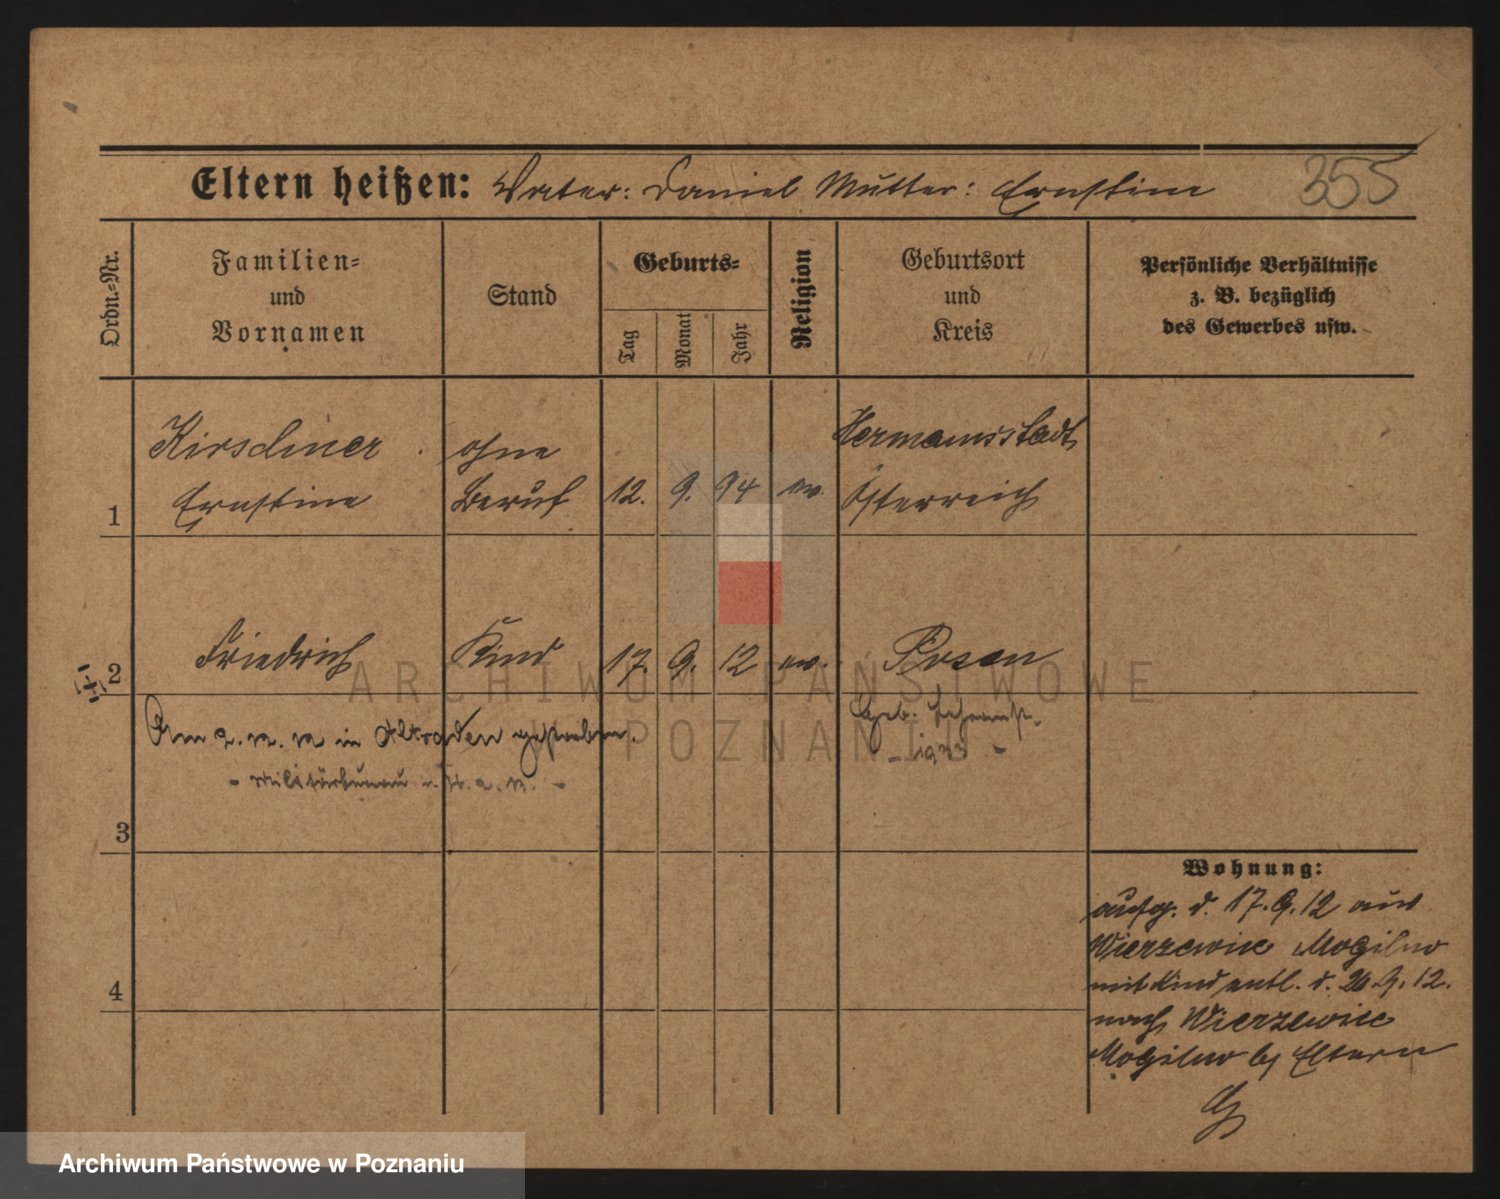 Eltern heißen: Vater: Daniel Mutter: Ernstine 355
Ordn.-Nr.
Familien-
und
Vornamen
Stand
Geburts-
Tag
Monat
Jahr
Religion
Geburtsort
und
Kreis
Persönliche Verhältnisse
z. B. bezüglich
des Gewerbes usw.
Kirschner ohne Hermannstadt
1 Ernstine Beruf 12. 9. 94 ev. Österreich
2 Friedrich Kind 17. 9. 12 ev. Posen
Am in gestorben. Geb.
3
Wohnung:
aufg. d. 17.9.12 aus
Wierzewice Mogilno
mit Kind entl. d. 26.9.12.
4
nach Wierzewice
Mogilno b/ Eltern
ARCHIWUM PAŃSTWOWE
W POZNANIU
Archiwum Państwowe w Poznaniu